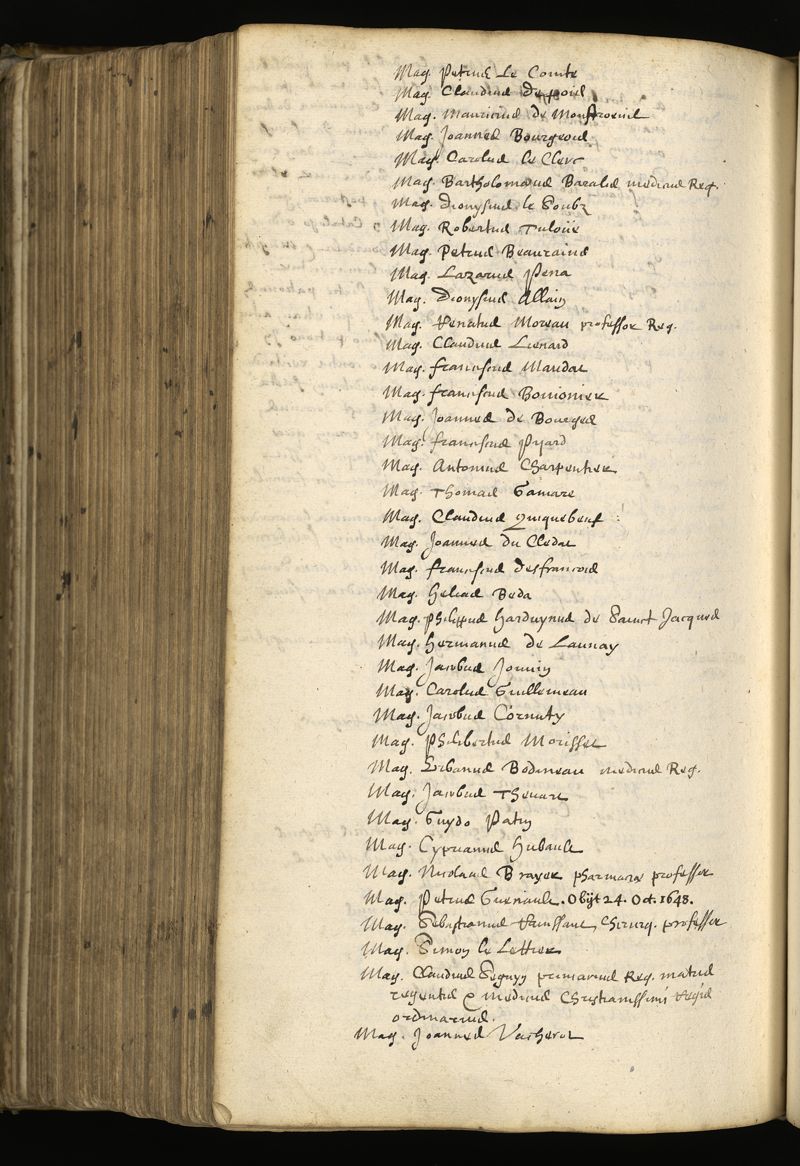 Mag. Petrus Le Comte
Mag. Claudius
Mag. Mauricius de Monstroeuil
Mag. Joannes Bourgeois
Mag. Carolus le Clerc
Mag. Bartholomaeus Baralis medicus Reg.
Mag. Dionysius le Soubz
Mag. Robertus Tuloüe
Mag. Petrus Beaurains
Mag. Lazarus Pena
Mag. Dionysius Allain
Mag. Renatus Moreau professor Reg.
Mag. Claudius Lienard
Mag. Franciscus Mandat
Mag. Franciscus Bouionier
Mag. Joannes de Bourges
Mag. Franciscus Pijard
Mag. Antonius Charpentier
Mag. Thomas Gamare
Mag. Claudius Quiquebeuf
Mag. Joannes du Cledat
Mag. Franciscus Desfrancois
Mag. Helias Beda
Mag. Philippus Harduynus de Sainct Jacques
Mag. Hermanus de Launay
Mag. Jacobus Jouuin
Mag. Carolus Guillemeau
Mag. Jacobus Cornuty
Mag. Philibertus Morisset
Mag. Urbanus Bodineau medicus Reg.
Mag. Jacobus Theuart
Mag. Guydo Patin
Mag. Cyprianus Hubault
Mag. Nicolaus Brayer pharmaciae professor
Mag. Petrus Guenault. Obijt 24. Oct. 1648.
Mag. Sebastianus Rainssant, Chirurg. professor
Mag. Simon le Lettier
Mag. Claudius Seguyn primarius Reg. matris
regentis & medicus Christianissimi Regis
ordinarius.
Mag. Joannes Vacherot